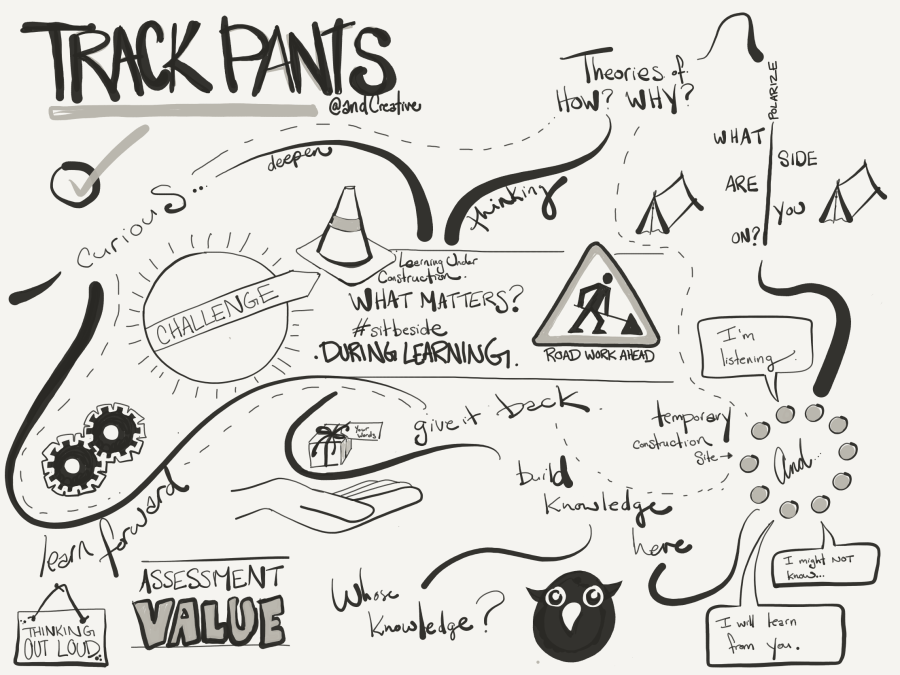 TRACK PANTS
@andCreative
Theories of
HOW? WHY?
POLARIZE
WHAT
SIDE
ARE
YOU
ON?
deepen
thinking
Curious...
CHALLENGE
Learning Under
Construction.
WHAT MATTERS?
#sitbeside
.DURING LEARNING.
ROAD WORK AHEAD
I'm
listening
give it back
Your
Words
temporary
construction
Site→
And
build
Knowledge
here
learn forward
ASSESSMENT
VALUE
THINKING
OUT LOUD
Whose
Knowledge?
I might NOT
know...
I will learn
from you.